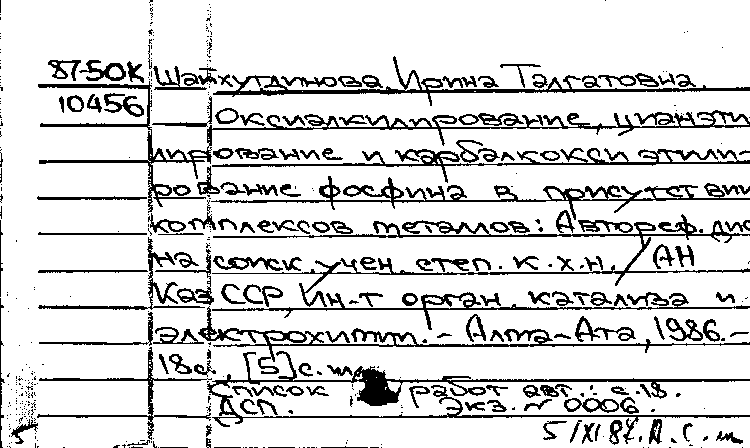 87-50К Шайхутдинова, Ирина Талгатовна.
10456 Оксиалкилирование, цианэти-
лирование и карбалкокси этили-
рование фосфина в присутствии
комплексов металлов: Автореф. дис.
на соиск. учен. степ. к.х.н. / АН
КазССР, Ин-т орган. катализа и
электрохимии. - Алма-Ата, 1986. -
18с., [5]с.
Список работ авт.: с.18.
Дсп. Экз. № 0006.